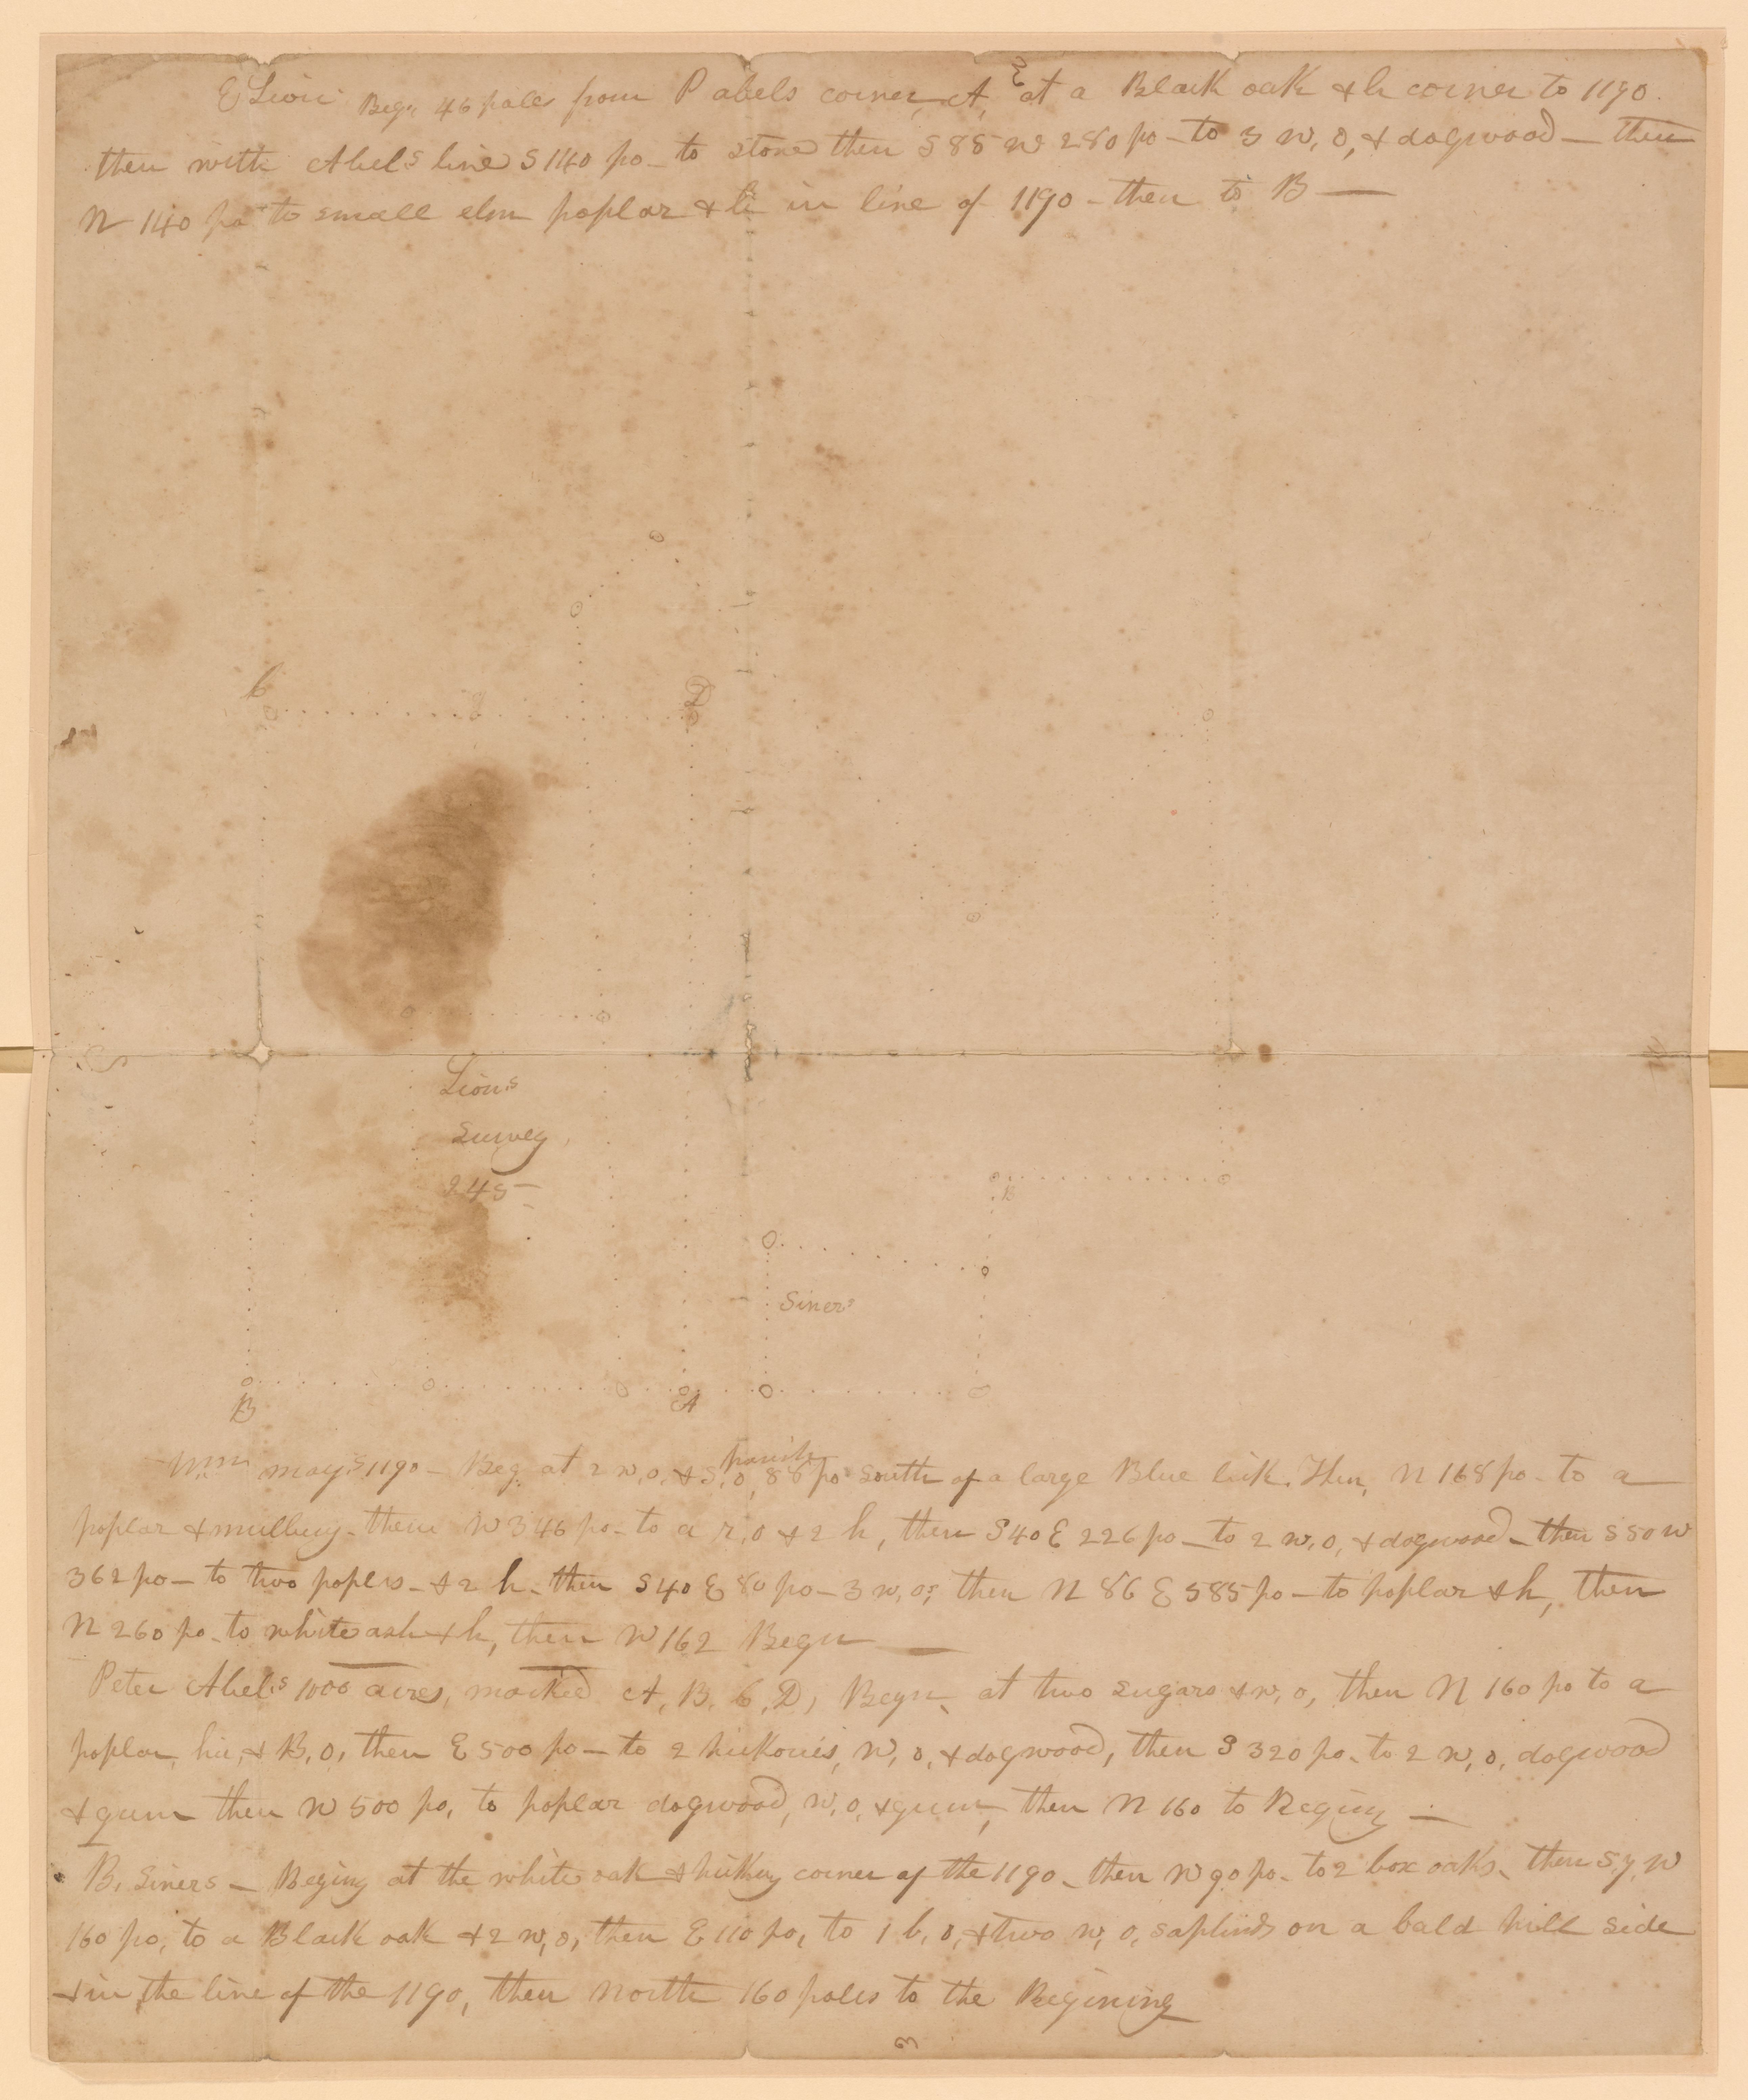 E Lion Begn 46 poles from P abels corner, A, E at a Black oak & h corner to 1190.
then with Abels line S 140 po - to stone then S 88 W 280 po - to 3 w, o, & dogwood — then
N 140 po to small elm poplar & h in line of 1190 - then to B —
C
D
Lions
Survey,
245
B
Siners
B
A
Wm mays 1190 - Beg. at 2 w, o, & S, o, 88 po south of a large Blue lick. Then, N 168 po - to a
poplar & mulbury - then W 346 po - to a r, o & 2 h, then S 40 E 226 po - to 2 w, o, & dogwood - then S 50 W
362 po - to two poplrs - & 2 h - then S 40 E 80 po - 3 w, o; then N 86 E 585 po - to poplar & h, then
N 260 po - to white ash & h, then W 162 Begn —
Peter Abels 1000 acres, marked A, B, C, D, Begn, at two sugars & w, o, then N 160 po to a
poplar, hic, & B, o, then E 500 po - to 2 hickories, W, o, & dogwood, then S 320 po - to 2 w, o, dogwood
& gum then W 500 po, to poplar dogwood, w, o, & gum, then N 160 to Beging —
B, Siners - Beging at the white oak & hickory corner of the 1190 - then W 90 po - to 2 box oaks - then S, 7, W
160 po, to a Black oak & 2 w, o, then E 110 po, to 1 b, o, & two w, o, saplinds on a bald hill side
& in the line of the 1190, then north 160 poles to the Begining
3